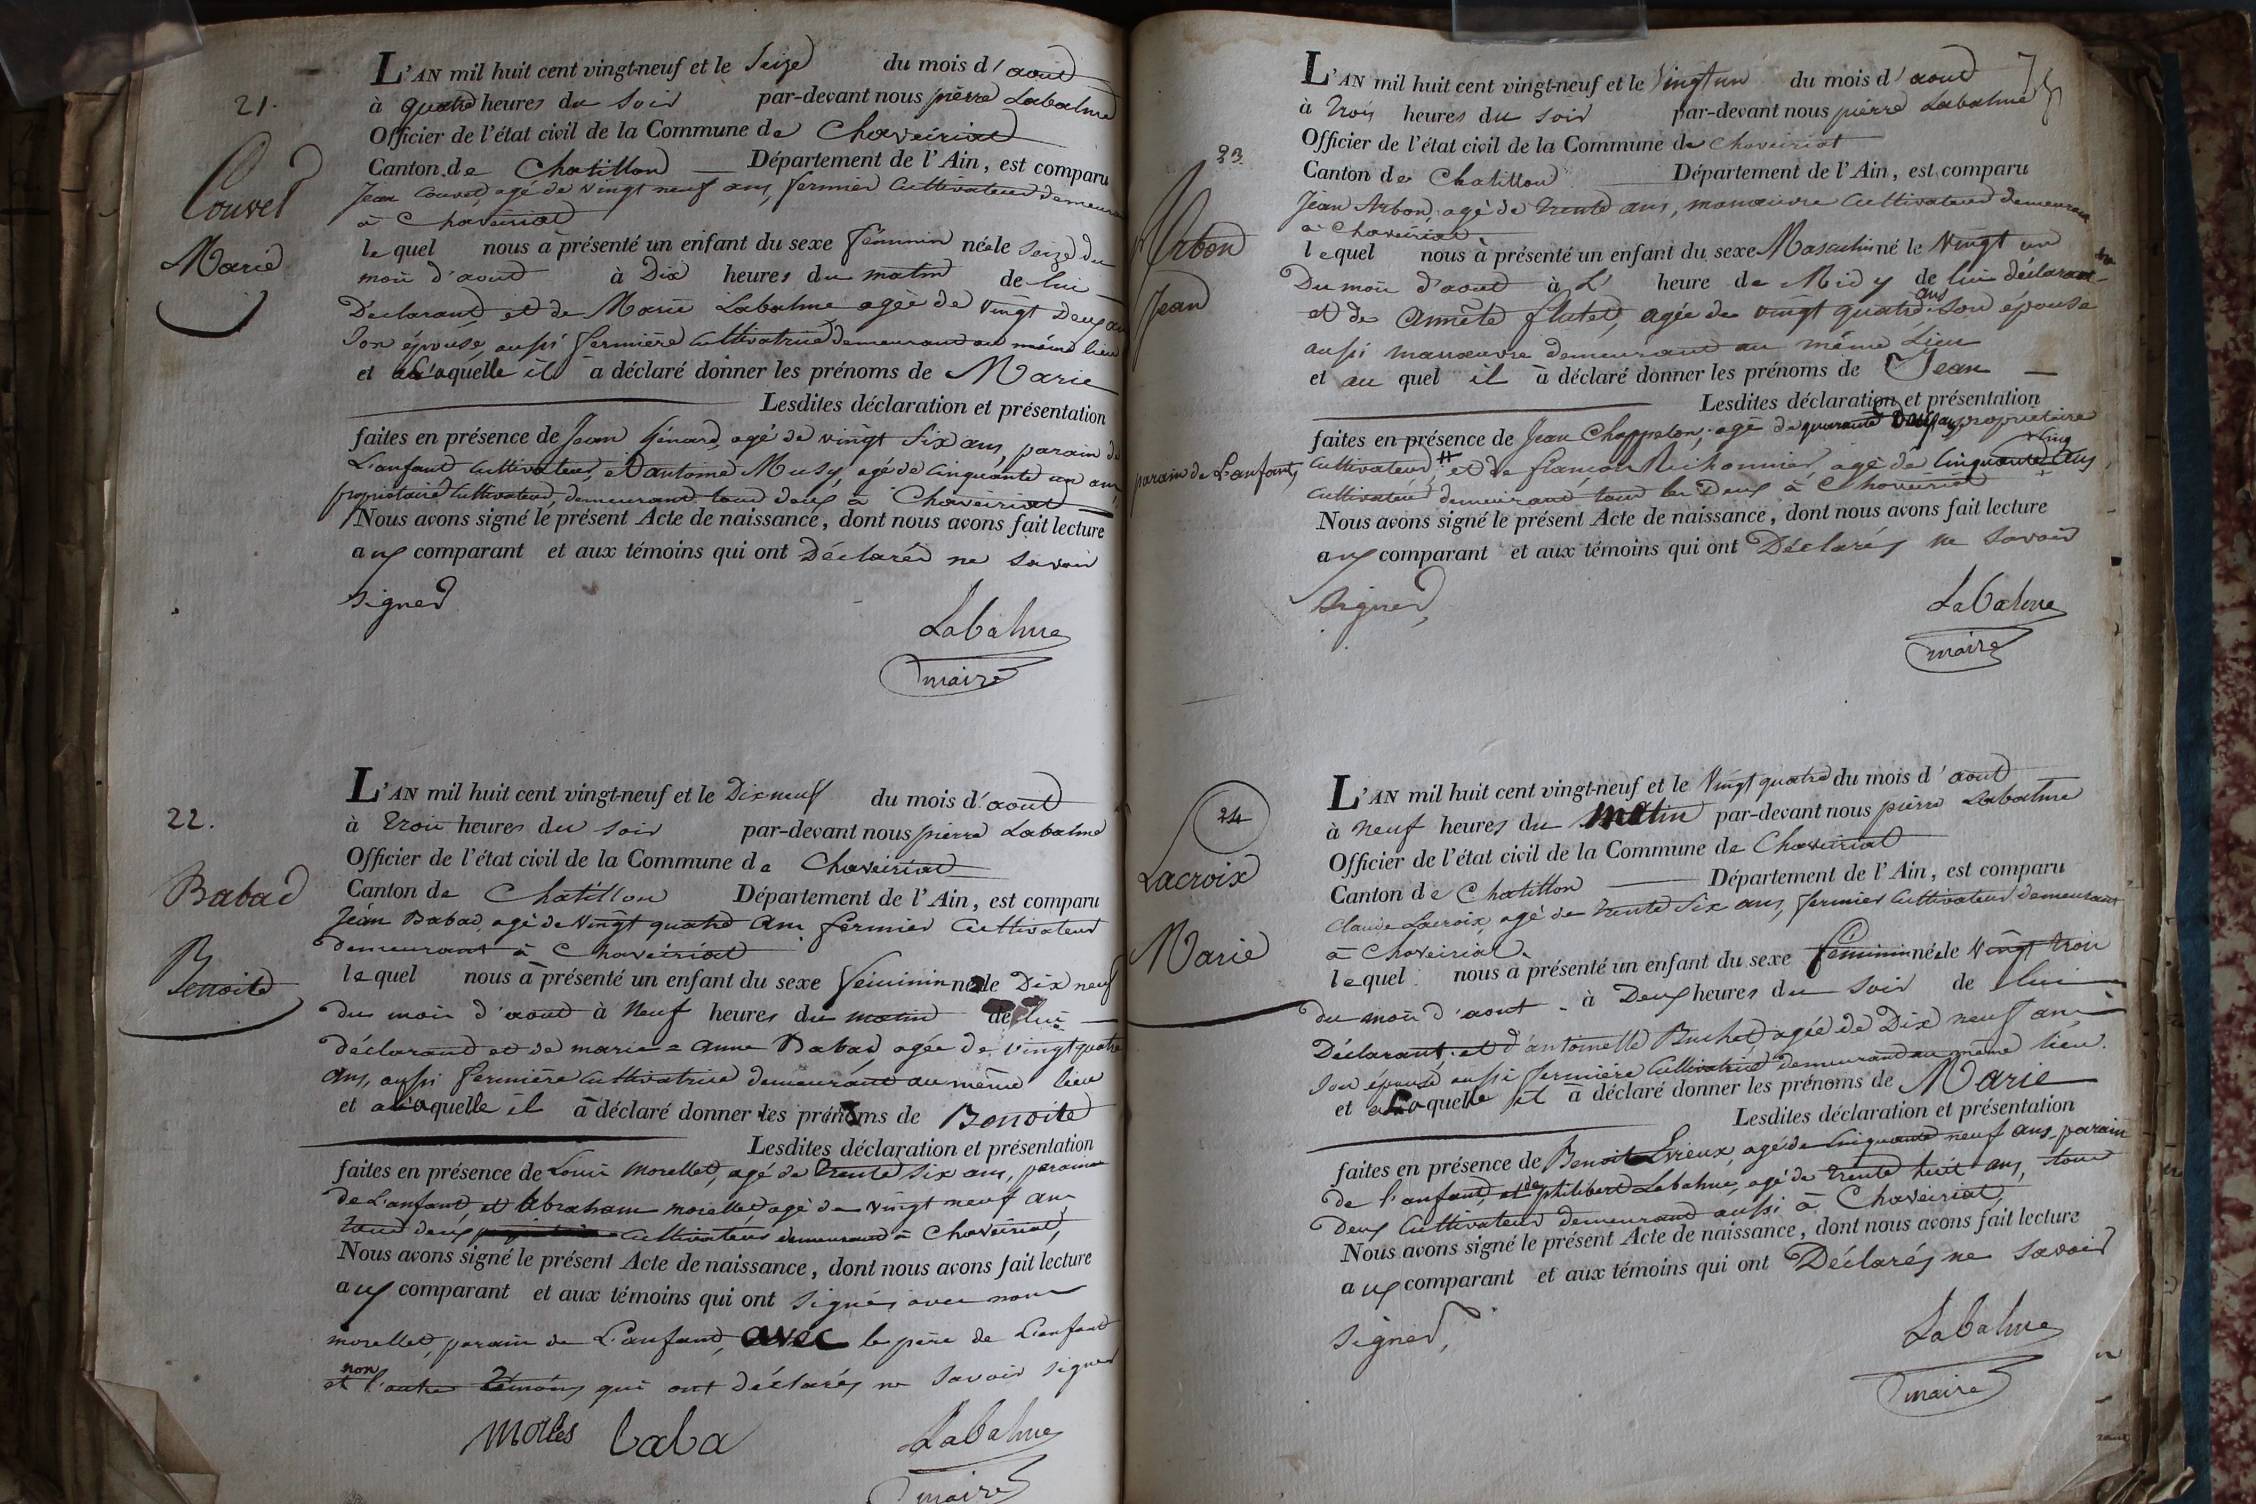 21.
Couvet
Marie
L'AN mil huit cent vingt-neuf et le Seize du mois d'aout
à quatre heures du soir par-devant nous pierre Labalme
Officier de l'état civil de la Commune de Chaveiriat
Canton de Chatillon Département de l'Ain, est comparu
Jean Couvet, agé de vingt neuf ans, fermier Cultivateur demeurant
à Chaveiriat
lequel nous à présenté un enfant du sexe féminin née le seize du
mois d'aout à Dix heures du matin de lui
Déclarant et de Marie Labalme agée de vingt Deux ans
son épouse, aussi fermière Cultivatrice demeurant au même lieu
et a laquelle il à déclaré donner les prénoms de Marie
Lesdites déclaration et présentation
faites en présence de Jean Génard, agé de vingt Six ans, parain de
L'anfant Cultivateur, et d'antoine Musy, agé de Cinquante un ans
propriétaire Cultivateur, demeurant tous deux à Chaveiriat
Nous avons signé le présent Acte de naissance, dont nous avons fait lecture
aux comparant et aux témoins qui ont Déclarés ne savoir
signer
Labalme
maire
22.
Babad
Benoite
L'AN mil huit cent vingt-neuf et le Dix neuf du mois d'aout
à trois heures du soir par-devant nous pierre Labalme
Officier de l'état civil de la Commune de Chaveiriat
Canton de Chatillon Département de l'Ain, est comparu
Jean Babad, agé de vingt quatre ans fermier Cultivateur
demeurant à Chaveiriat
lequel nous à présenté un enfant du sexe féminin née le Dix neuf
du mois d'aout à Neuf heures du matin de lui
déclarant et de marie = anne Babad, agée de vingt quatre
ans, aussi fermière Cultivatrice demeurant au même lieu
et a laquelle il à déclaré donner les prénoms de Benoite
Lesdites déclaration et présentation
faites en présence de Louis Morellet, agé de trente Six ans, parain
de L'anfant, et Abraham morellet agé de vingt neuf ans
tous deux Cultivateurs demeurant à Chaveiriat,
Nous avons signé le présent Acte de naissance, dont nous avons fait lecture
aux comparant et aux témoins qui ont signés avec nous
morellet, parain de L'anfant, avec le père de L'anfant
non
et l'autre témoins qui ont déclarés ne savoir signer
Labalme
maire
23.
Arbon
Jean
parain de L'anfant,
L'AN mil huit cent vingt-neuf et le Vingt un du mois d'aout
à trois heures du soir par-devant nous pierre Labalme
Officier de l'état civil de la Commune de Chaveiriat
Canton de Chatillon Département de l'Ain, est comparu
Jean Arbon, agé de trente ans, manœuvre Cultivateur demeurant
à Chaveiriat
lequel nous à présenté un enfant du sexe Masculin né le Vingt un
Du mois d'aout à L' heure de Midy de lui déclarant
ans
et de Annète flutet, agée de vingt quatre son épouse
aussi manœuvre demeurant au même Lieu
et au quel il à déclaré donner les prénoms de Jean
Lesdites déclaration et présentation
faites en présence de Jean Chappelon, agé de quarante propriétaire
Cultivateur, # et de françois Richonnier, agé de Cinquante Cinq ans
Cultivateur demeurant tous les Deux à Chaveiriat
Nous avons signé le présent Acte de naissance, dont nous avons fait lecture
aux comparant et aux témoins qui ont Déclarés ne savoir
signer,
Labalme
maire
24
Lacroix
Marie
L'AN mil huit cent vingt-neuf et le Vingt quatre du mois d'aout
à neuf heures du matin par-devant nous pierre Labalme
Officier de l'état civil de la Commune de Chaveiriat
Canton de Chatillon Département de l'Ain, est comparu
Claude Lacroix, agé de trente Six ans, fermier Cultivateur demeurant
à Chaveiriat
lequel nous à présenté un enfant du sexe féminin née le Vingt trois
du mois d'aout à Deux heures du soir de lui
Déclarant, et d'antoinette Buchet agée de Dix neuf ans
son épouse aussi fermière Cultivatrice demeurant au même lieu.
et a Laquelle il à déclaré donner les prénoms de Marie
Lesdites déclaration et présentation
faites en présence de Benoit Evieux, agé de Cinquante neuf ans, parain
de l'anfant, et de philibert Labalme, agé de trente huit ans, tous
Deux Cultivateur demeurant aussi à Chaveiriat,
Nous avons signé le présent Acte de naissance, dont nous avons fait lecture
aux comparant et aux témoins qui ont Déclarés ne savoir
signer,
Labalme
maire